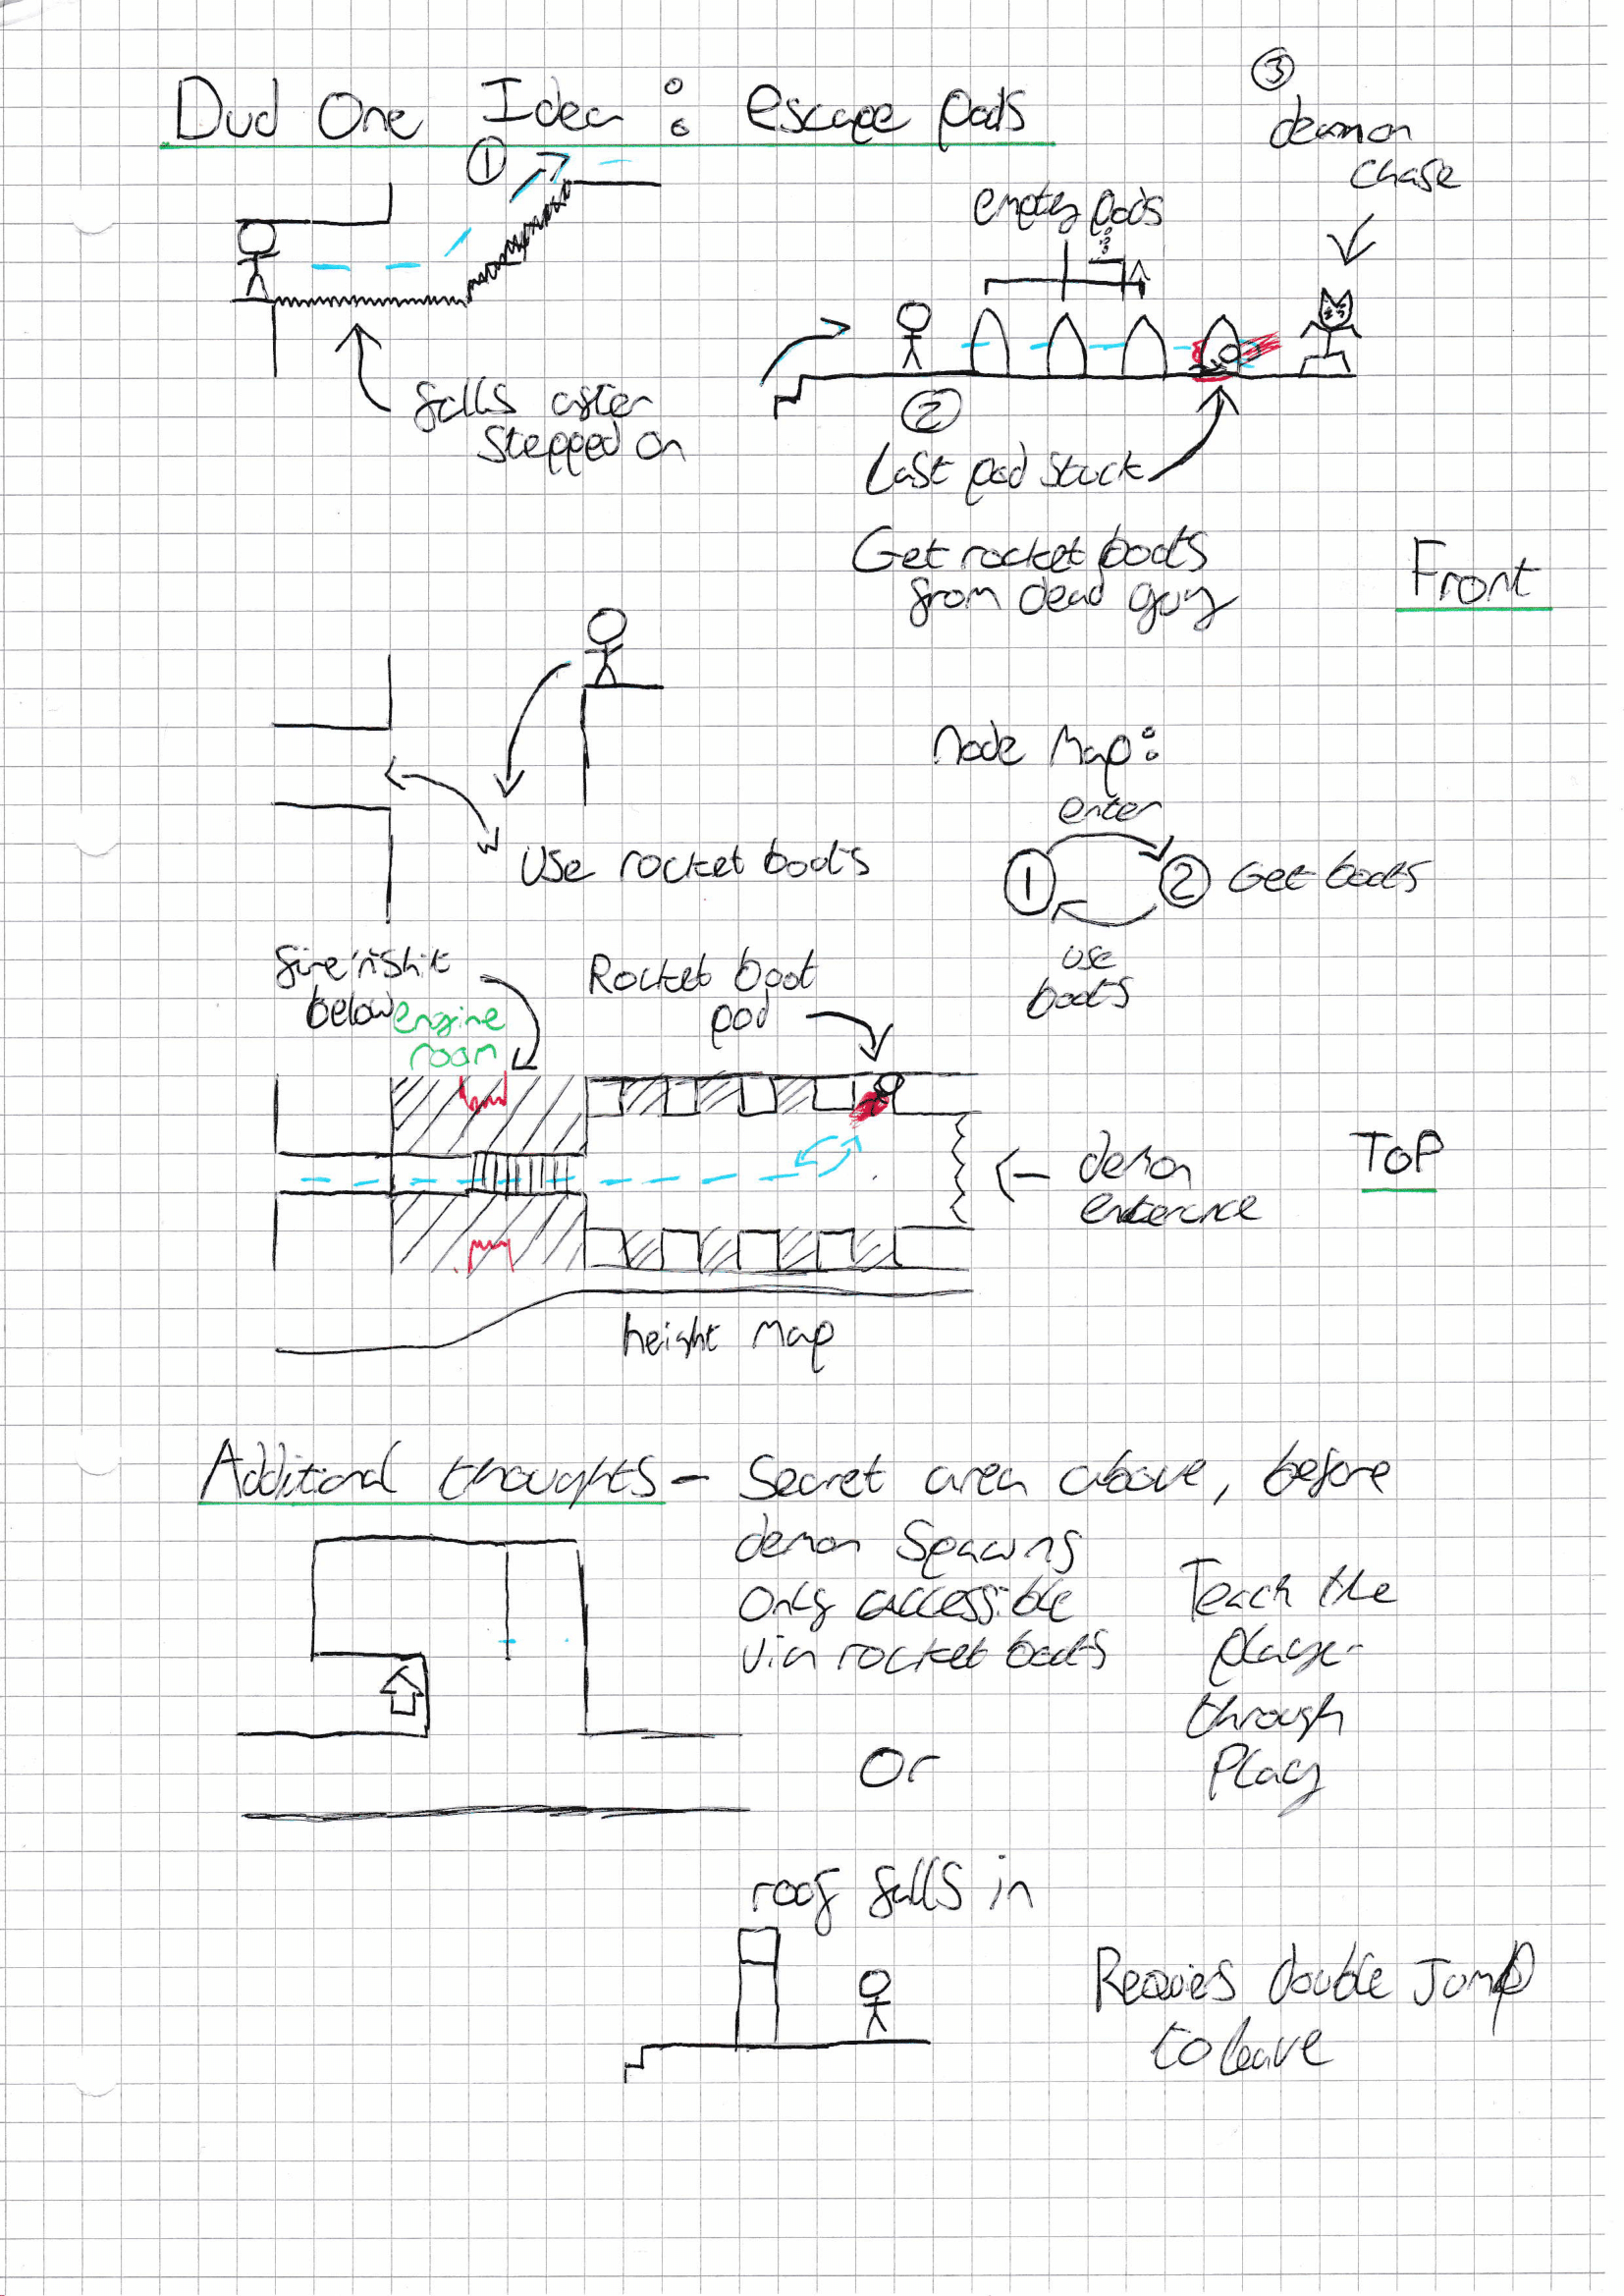 Dud One Idea : escape pods
①
③
deamon
chase
empty pods
falls after
stepped on
②
Last pod stuck
Get rocket boots
from dead guy
Front
Use rocket boots
Node Map:
enter
① ② Get boots
use
boots
fire 'n shit
below
engine
room
Rocket boot
pod
demon
enterence
TOP
height map
Additional thoughts - Secret area above, before
demon spawns
Only accessible
via rocket boots
Teach the
player
through
Play
Or
roof falls in
Requies double Jump
to leave